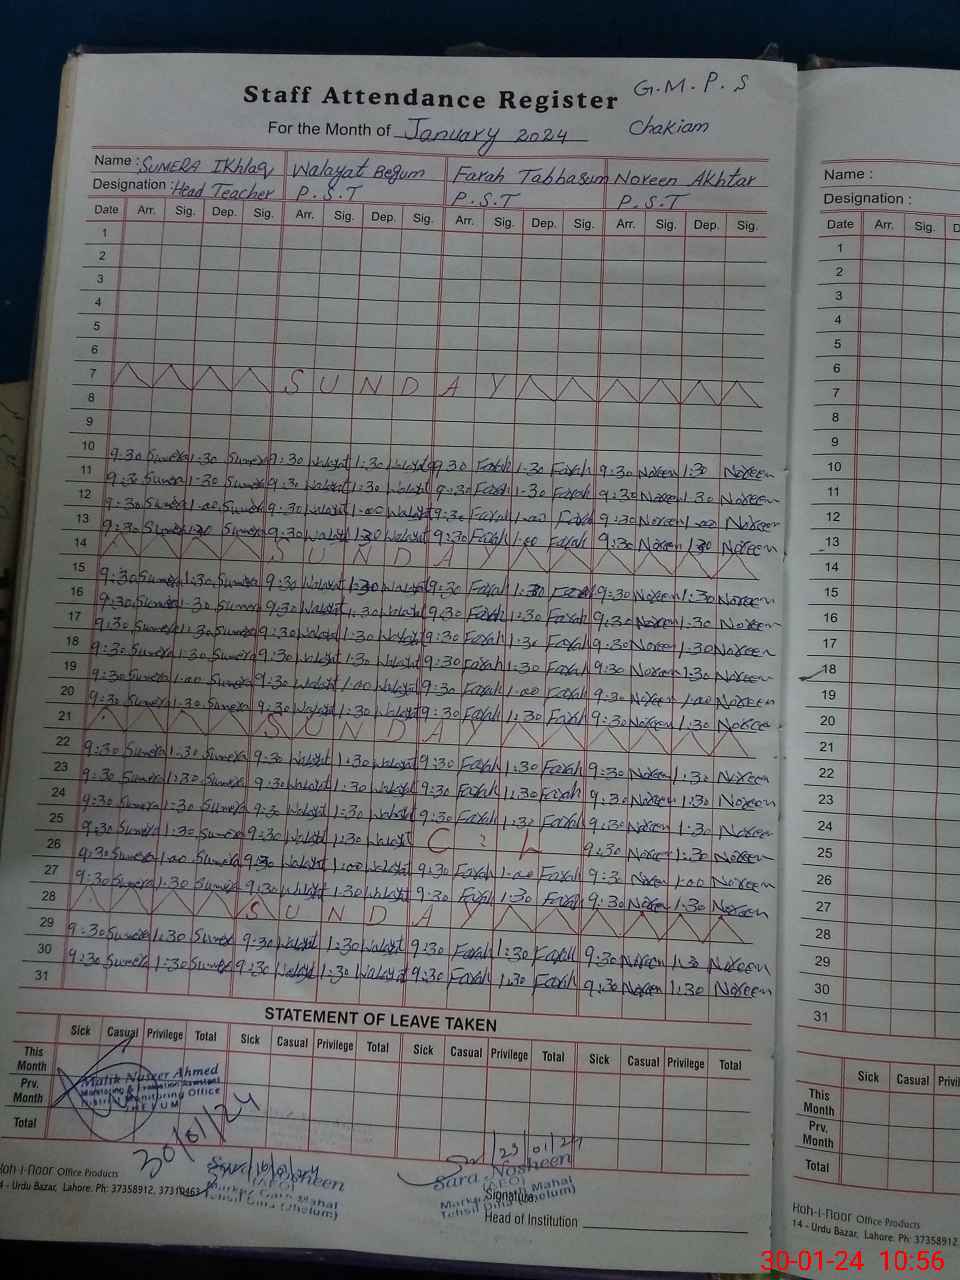 G.M.P.S
Staff Attendance Register
For the Month of January 2024 Chakiam
Name : SUMERA IKhlaq Walayat Begum Farah Tabbasum Noreen Akhtar
Designation : Head Teacher P.S.T P.S.T P.S.T
Date Arr. Sig. Dep. Sig. Arr. Sig. Dep. Sig. Arr. Sig. Dep. Sig. Arr. Sig. Dep. Sig.
1
2
3
4
5
6
7 SUNDAY
8
9
10 9:30 Sumera 1:30 Sumera 9:30 Walayt 1:30 Walayt 9:30 Farah 1:30 Farah 9:30 Noreen 1:30 Noreen
11 9:30 Sumera 1:30 Sumera 9:30 Walayt 1:30 Walayt 9:30 Farah 1:30 Farah 9:30 Noreen 1:30 Noreen
12 9:30 Sumera 1:00 Sumera 9:30 Walayt 1:00 Walayt 9:30 Farah 1:00 Farah 9:30 Noreen 1:00 Noreen
13 9:30 Sumera 1:30 Sumera 9:30 Walayt 1:30 Walayt 9:30 Farah 1:00 Farah 9:30 Noreen 1:30 Noreen
14 SUNDAY
15 9:30 Sumera 1:30 Sumera 9:30 Walayt 1:30 Walayt 9:30 Farah 1:30 Farah 9:30 Noreen 1:30 Noreen
16 9:30 Sumera 1:30 Sumera 9:30 Walayt 1:30 Walayt 9:30 Farah 1:30 Farah 9:30 Noreen 1:30 Noreen
17 9:30 Sumera 1:30 Sumera 9:30 Walayt 1:30 Walayt 9:30 Farah 1:30 Farah 9:30 Noreen 1:30 Noreen
18 9:30 Sumera 1:30 Sumera 9:30 Walayt 1:30 Walayt 9:30 Farah 1:30 Farah 9:30 Noreen 1:30 Noreen
19 9:30 Sumera 1:00 Sumera 9:30 Walayt 1:00 Walayt 9:30 Farah 1:00 Farah 9:30 Noreen 1:00 Noreen
20 9:30 Sumera 1:30 Sumera 9:30 Walayt 1:30 Walayt 9:30 Farah 1:30 Farah 9:30 Noreen 1:30 Noreen
21 SUNDAY
22 9:30 Sumera 1:30 Sumera 9:30 Walayt 1:30 Walayt 9:30 Farah 1:30 Farah 9:30 Noreen 1:30 Noreen
23 9:30 Sumera 1:30 Sumera 9:30 Walayt 1:30 Walayt 9:30 Farah 1:30 Farah 9:30 Noreen 1:30 Noreen
24 9:30 Sumera 1:30 Sumera 9:30 Walayt 1:30 Walayt 9:30 Farah 1:30 Farah 9:30 Noreen 1:30 Noreen
25 9:30 Sumera 1:30 Sumera 9:30 Walayt 1:30 Walayt C : L 9:30 Noreen 1:30 Noreen
26 9:30 Sumera 1:00 Sumera 9:30 Walayt 1:00 Walayt 9:30 Farah 1:00 Farah 9:30 Noreen 1:00 Noreen
27 9:30 Sumera 1:30 Sumera 9:30 Walayt 1:30 Walayt 9:30 Farah 1:30 Farah 9:30 Noreen 1:30 Noreen
28 SUNDAY
29 9:30 Sumera 1:30 Sumera 9:30 Walayt 1:30 Walayt 9:30 Farah 1:30 Farah 9:30 Noreen 1:30 Noreen
30 9:30 Sumera 1:30 Sumera 9:30 Walayt 1:30 Walayt 9:30 Farah 1:30 Farah 9:30 Noreen 1:30 Noreen
31
STATEMENT OF LEAVE TAKEN
Sick Casual Privilege Total Sick Casual Privilege Total Sick Casual Privilege Total Sick Casual Privilege Total
This Month
Prv. Month
Total
Malik Naseer Ahmed
Monitoring & Evaluation Assistant
District Monitoring Office
JHELUM
30/01/24
Sara Nosheen
(AEO)
Markaz Garh Mahal
Tehsil Dina (Jhelum)
23/01/24
Sara Nosheen
(AEO)
Markaz Garh Mahal
Tehsil Dina (Jhelum)
Signature
Head of Institution
Koh-i-noor Office Products
4 - Urdu Bazar, Lahore. Ph: 37358912, 37310463
Name :
Designation :
Date Arr. Sig.
1
2
3
4
5
6
7
8
9
10
11
12
13
14
15
16
17
18
19
20
21
22
23
24
25
26
27
28
29
30
31
Sick Casual
This Month
Prv. Month
Total
Koh-i-noor Office Products
14 - Urdu Bazar, Lahore. Ph: 37358912
30-01-24 10:56